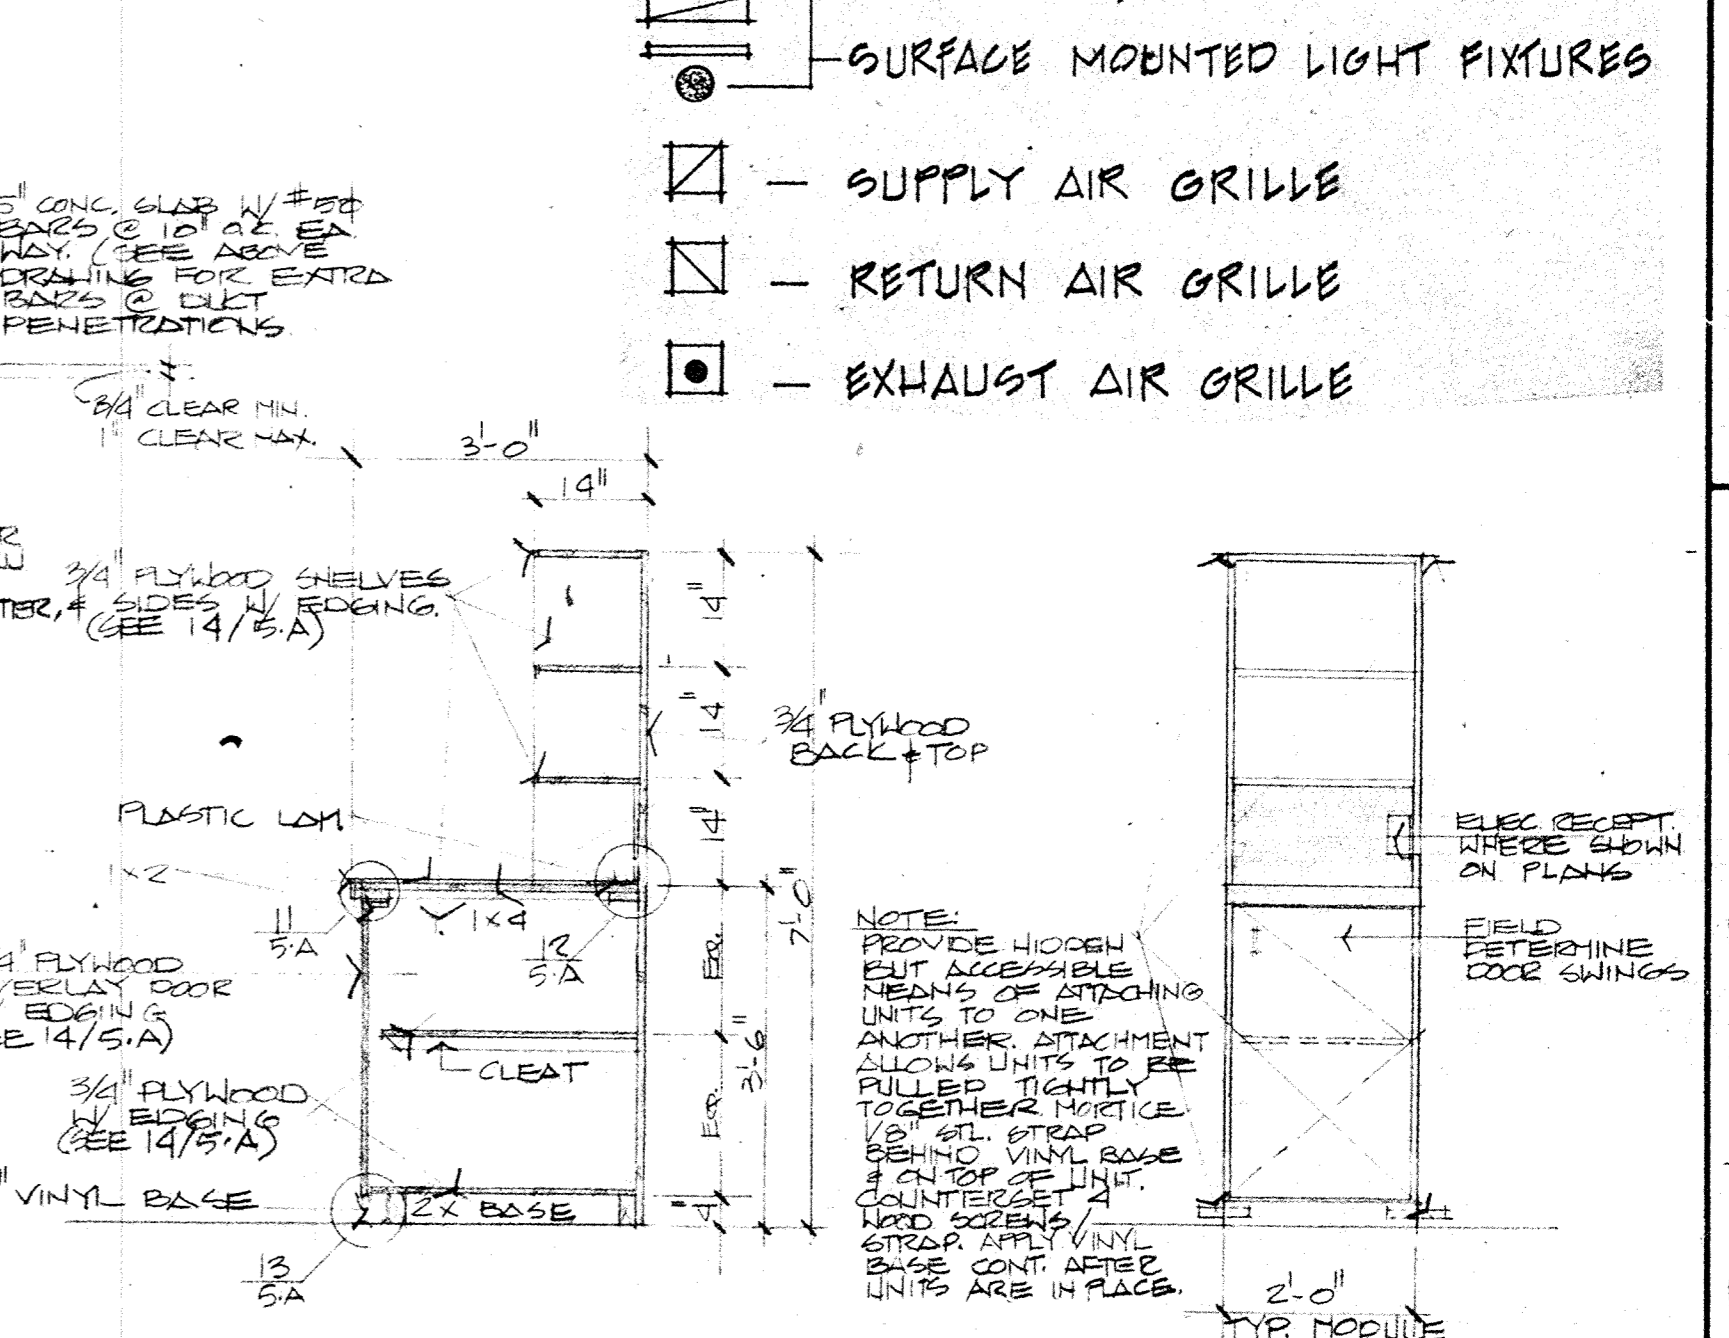 SURFACE MOUNTED LIGHT FIXTURES
— SUPPLY AIR GRILLE
— RETURN AIR GRILLE
— EXHAUST AIR GRILLE
5" CONC. SLAB W/ #5⌀
BARS @ 10" O.C. EA.
WAY. (SEE ABOVE
DRAWING FOR EXTRA
BARS @ DUCT
PENETRATIONS.
3/4" CLEAR MIN.
1" CLEAR MAX.
3'-0"
14"
3/4" PLYWOOD SHELVES
& SIDES W/ EDGING.
(SEE 14/5.A)
14"
14"
14"
3/4" PLYWOOD
BACK & TOP
PLASTIC LAM.
1x2
11
5.A
1x4
12
5.A
4" PLYWOOD
VERLAY DOOR
EDGING
EE 14/5.A)
CLEAT
3/4" PLYWOOD
W/ EDGING
(SEE 14/5.A)
" VINYL BASE
2x BASE
13
5.A
EQ.
EQ.
4"
3'-6"
7'-0"
NOTE:
PROVIDE HIDDEN
BUT ACCESSIBLE
MEANS OF ATTACHING
UNITS TO ONE
ANOTHER. ATTACHMENT
ALLOWS UNITS TO BE
PULLED TIGHTLY
TOGETHER. MORTICE
1/8" STL. STRAP
BEHIND VINYL BASE
& ON TOP OF UNIT.
COUNTERSET 4
WOOD SCREWS/
STRAP. APPLY VINYL
BASE CONT. AFTER
UNITS ARE IN PLACE.
ELEC. RECEPT.
WHERE SHOWN
ON PLANS
FIELD
DETERMINE
DOOR SWINGS
2'-0"
TYP. MODULE